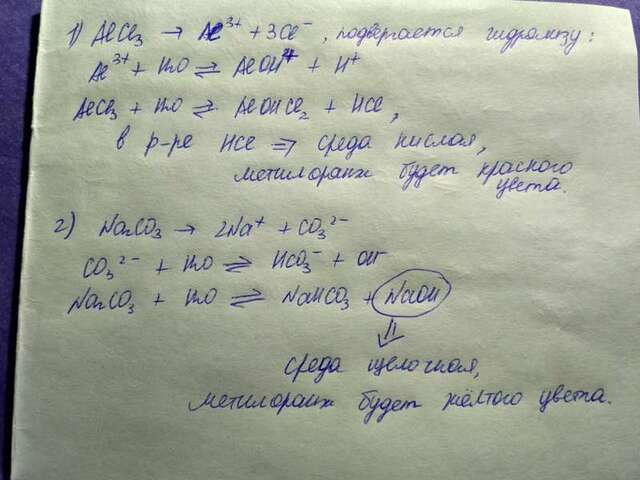 1) AlCl₃ → Al³⁺ + 3Cl⁻, подвергается гидролизу:
Al³⁺ + H₂O ⇄ AlOH²⁺ + H⁺
AlCl₃ + H₂O ⇄ AlOHCl₂ + HCl,
в р-ре HCl ⇒ среда кислая,
метилоранж будет красного
цвета.
2) Na₂CO₃ → 2Na⁺ + CO₃²⁻
CO₃²⁻ + H₂O ⇄ HCO₃⁻ + OH⁻
Na₂CO₃ + H₂O ⇄ NaHCO₃ + NaOH
⇓
среда щелочная,
метилоранж будет жёлтого цвета.